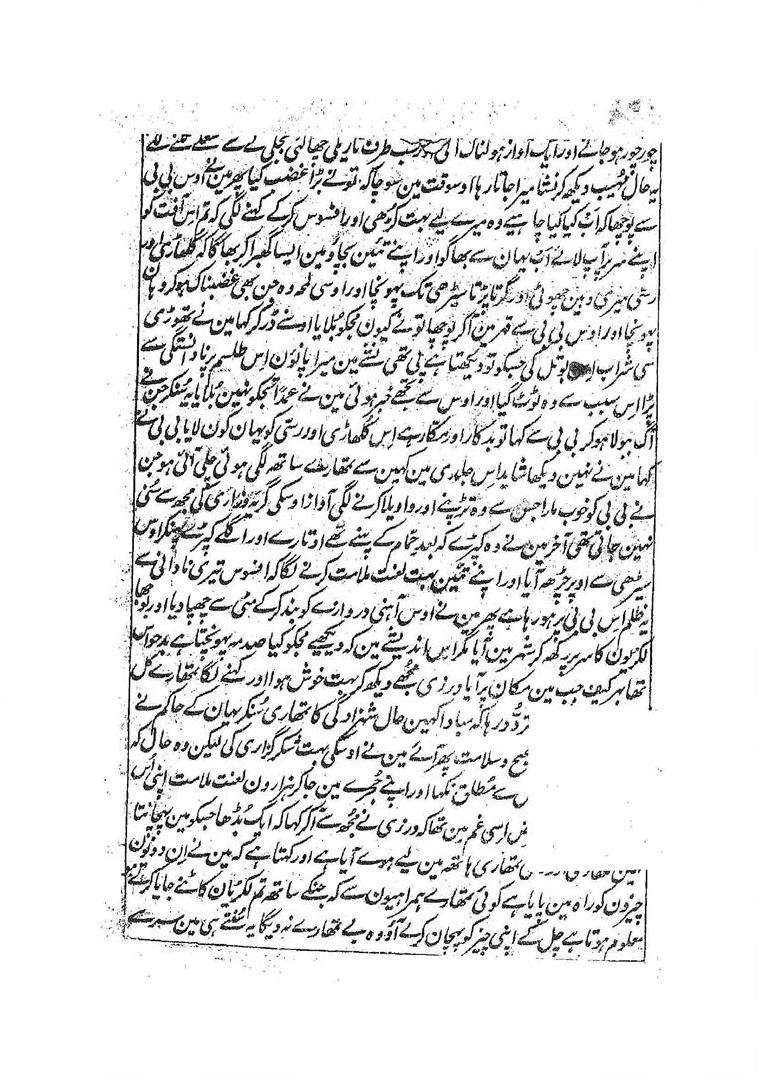 چور چور ہو جائے اور ایک آواز ہولناک آئی طرف تاریکی چھا گئی بجلی سے شعلے نکلنے لگے
یہ حال مہیب دیکھ کر نشا میرا جاتا رہا اوسوقت مین سوچا کہ تونے بڑا غضب کیا پھر مین نے اوس بی بی
سے پوچھا کہ اب کیا کیا چاہیے وہ میرے لیے بہت کوڑھی اور افسوس کرکے کہنے لگی کہ تم اس آفت کو
اپنے سر پر آپ لائے اب یہان سے بھاگو اور اپنے تئین بچاؤ مین ایسا گھبرا کر بھاگا کہ کلھاڑی اور
رسّی میری وہین چھوٹی اور گرتا پڑتا سیڑھی تک پہونچا اور اوسی لمحہ وہ جن بھی غضبناک ہو کر وہان
پہونچا اور اوس بی بی سے قہر مین آکر پوچھا تونے کیون مجکو بلایا اوسنے ڈر کر کہا مین نے تھوڑی
سی شراب اس بوتل کی جسکو تو دیکھتا ہے پی تھی نشے مین میرا پانؤن اس طلسم پر نادانستگی سے
پڑا اس سبب سے وہ ٹوٹ گیا اور اوس سے تجھے خبر ہوئی مین نے عمداً تجکو نہین بلایا یہ سنکر جن نے
آگ بولا ہو کر بی بی سے کہا تو بدکار اور مکّار ہے اس کلھاڑی اور رسّی کو یہان کون لایا بی بی نے
کہا مین نے نہین دیکھا شاید اس جلدی مین کہین سے تمھارے ساتھ لگی ہوئی چلی آئی ہو جن
نے بی بی کو خوب مارا جس سے وہ تڑپنے اور واویلا کرنے لگی آواز اوسکی گریہ وزاری کی مجھ سے سنی
نہین جاتی تھی آخر مین نے وہ کپڑے کہ بعد حمّام کے پہنے تھے اوتارے اور اگلے کپڑے پہنکر اوس
سیڑھی سے اوپر چڑھ آیا اور اپنے تئین بہت لعنت ملامت کرنے لگا کہ افسوس تیری نادانی سے
یہ ظلم اس بی بی پر ہو رہا ہے پھر مین نے اوس آہنی دروازے کو بند کرکے مٹی سے چھپا دیا اور بوجھا
لکڑیون کا سر پر رکھ کر شہر مین آیا مگر اس اندیشے مین کہ دیکھیے مجکو کیا صدمہ پہونچتا ہے بدحواس
تھا بہر کیف جب مین مکان پر آیا درزی مجھے دیکھ کر بہت خوش ہوا اور کہنے لگا تمھارے کل
تردّد رہا کہ مبادا کہین حال شہزادگی کا تمھاری سنکر یہان کے حاکم نے
صحیح و سلامت پھر آئے مین نے اوسکی بہت شکر گزاری کی لیکن وہ حال کہ
سے مطلق نکہا اور اپنے حجرے مین جاکر ہزارون لعنت ملامت اپنی اس
اسی غم مین تھا کہ درزی نے مجھ سے آکر کہا کہ ایک بڈھا جسکو مین پہچانتا
تمھاری ہاتھ مین لیے ہوے آیا ہے اور کہتا ہے کہ مین نے ان دونون
چیزون کو راہ مین پایا ہے کوئی تمھارے ہمراہیون سے کہ جنکے ساتھ تم لکڑیان کاٹنے جایا کرتے ہو
معلوم ہوتا ہے چل کے اپنی چیز کو پہچان کر لے آؤ وہ بے تمھارے نہ دیگا یہ سنتے ہی مین سرے